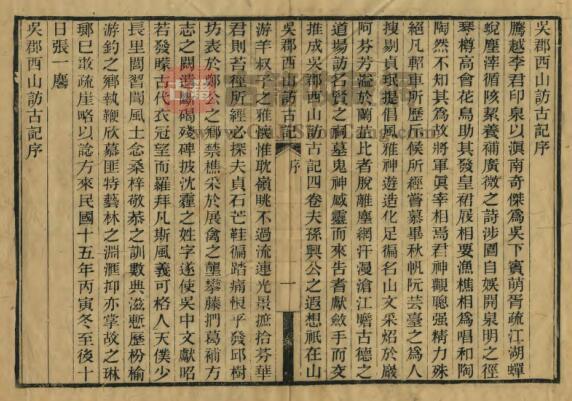 吳郡西山訪古記序
騰越李君印泉以滇南奇傑爲吳下賓萌胥疏江湖蟬
蛻塵滓循陔絜養補廣微之詩涉園自娛開泉明之徑
琴樽高會花鳥助其發皇裙屐相要漁樵相爲唱和陶
陶然不知其爲故將軍眞宰相焉君神觀聰强精力殊
絕凡軺車所歷斥候所經嘗慕畢秋帆阮芸臺之爲人
搜剔貞珉提倡風雅神遊造化足徧名山文采炤於巖
阿芬芳流於蘭茝比者脫離塵網汗漫滄江瞻古德之
道場訪名賢之祠墓鬼神感靈而來告耆獻斂手而交
推成吳郡西山訪古記四卷夫孫興公之遐想祇在山
吳郡西山訪古記 序 一
游羊叔子之雅懷惟耽嶺眺不過流連光景摭拾芬華
君則苔徑所經必探夫貞石芒鞋徧踏痛恨乎發邱樹
坊表於鄭公之鄉禁樵采於展禽之壟攀藤捫葛補方
志之闕遺斷碣殘碑披沈薶之姓字遂使吳中文獻昭
若發曚古代衣冠望而羅拜凡斯風義可格人天僕少
長里閭習聞風土念桑梓敬恭之訓數典滋慙歷枌榆
游釣之鄉執鞭欣慕匪特藝林之淵滙抑亦掌故之琳
瑯已敢疏崖略以諗方來民國十五年丙寅冬至後十
日張一麐